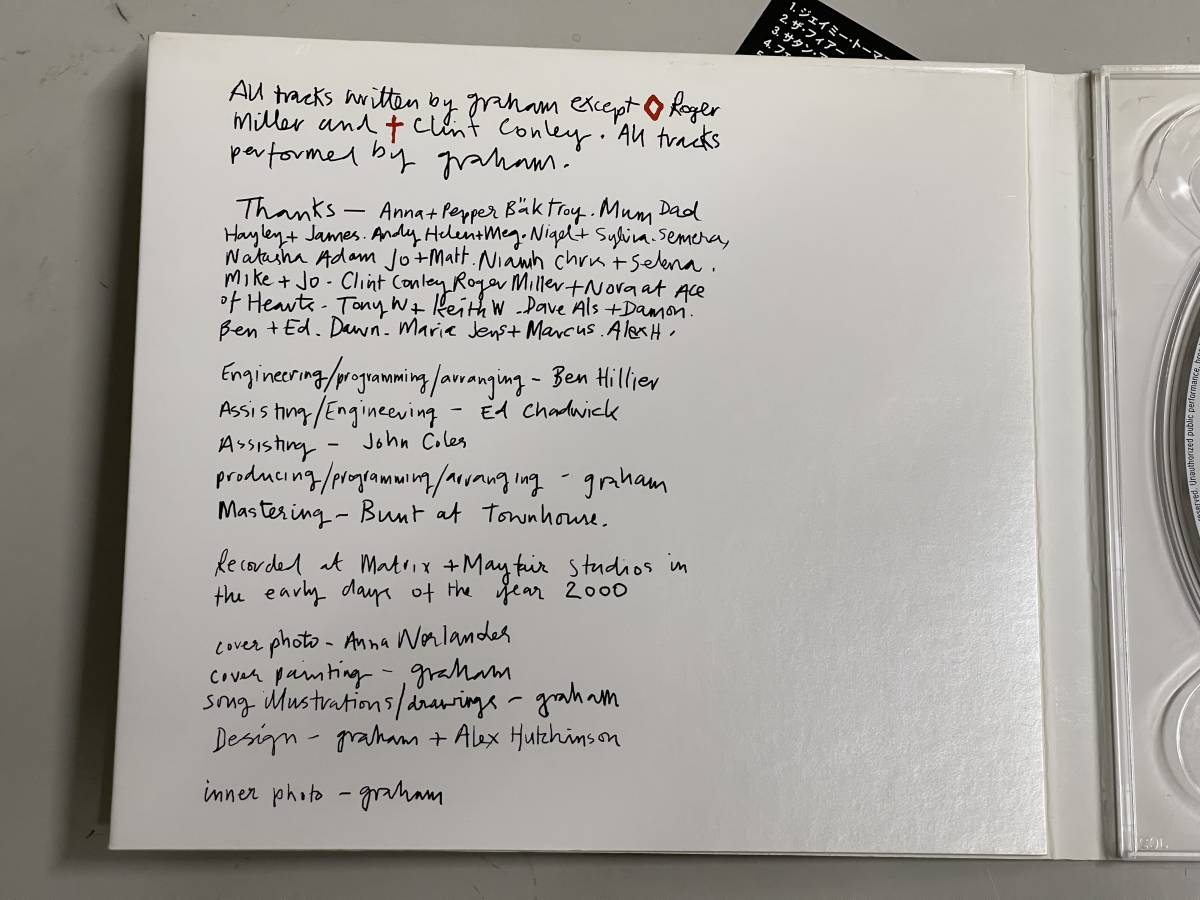 1.ジェイミー・トーマ
2.ザ・フィアー
3.サタン・
4.フ
All tracks written by graham except ◊ Roger
Miller and † Clint Conley. All tracks
performed by graham.
Thanks — Anna + Pepper Bäk Troy. Mum Dad
Hayley + James. Andy Helen + Meg. Nigel + Sylvia. Semera,
Natasha Adam Jo + Matt. Niamh Chris + Selena.
Mike + Jo - Clint Conley Roger Miller + Nora at Ace
of Hearts - Tony W + Keith W - Dave Als + Damon.
Ben + Ed. Dawn - Maria Jens + Marcus. Alex H.
Engineering/programming/arranging - Ben Hillier
Assisting/Engineering - Ed Chadwick
Assisting - John Coles
producing/programming/arranging - graham
Mastering - Bunt at Townhouse.
Recorded at Matrix + Mayfair Studios in
the early days of the year 2000
cover photo - Anna Norlander
cover painting - graham
song illustrations/drawings - graham
Design - graham + Alex Hutchinson
inner photo - graham
reserved. Unauthorized public performance,